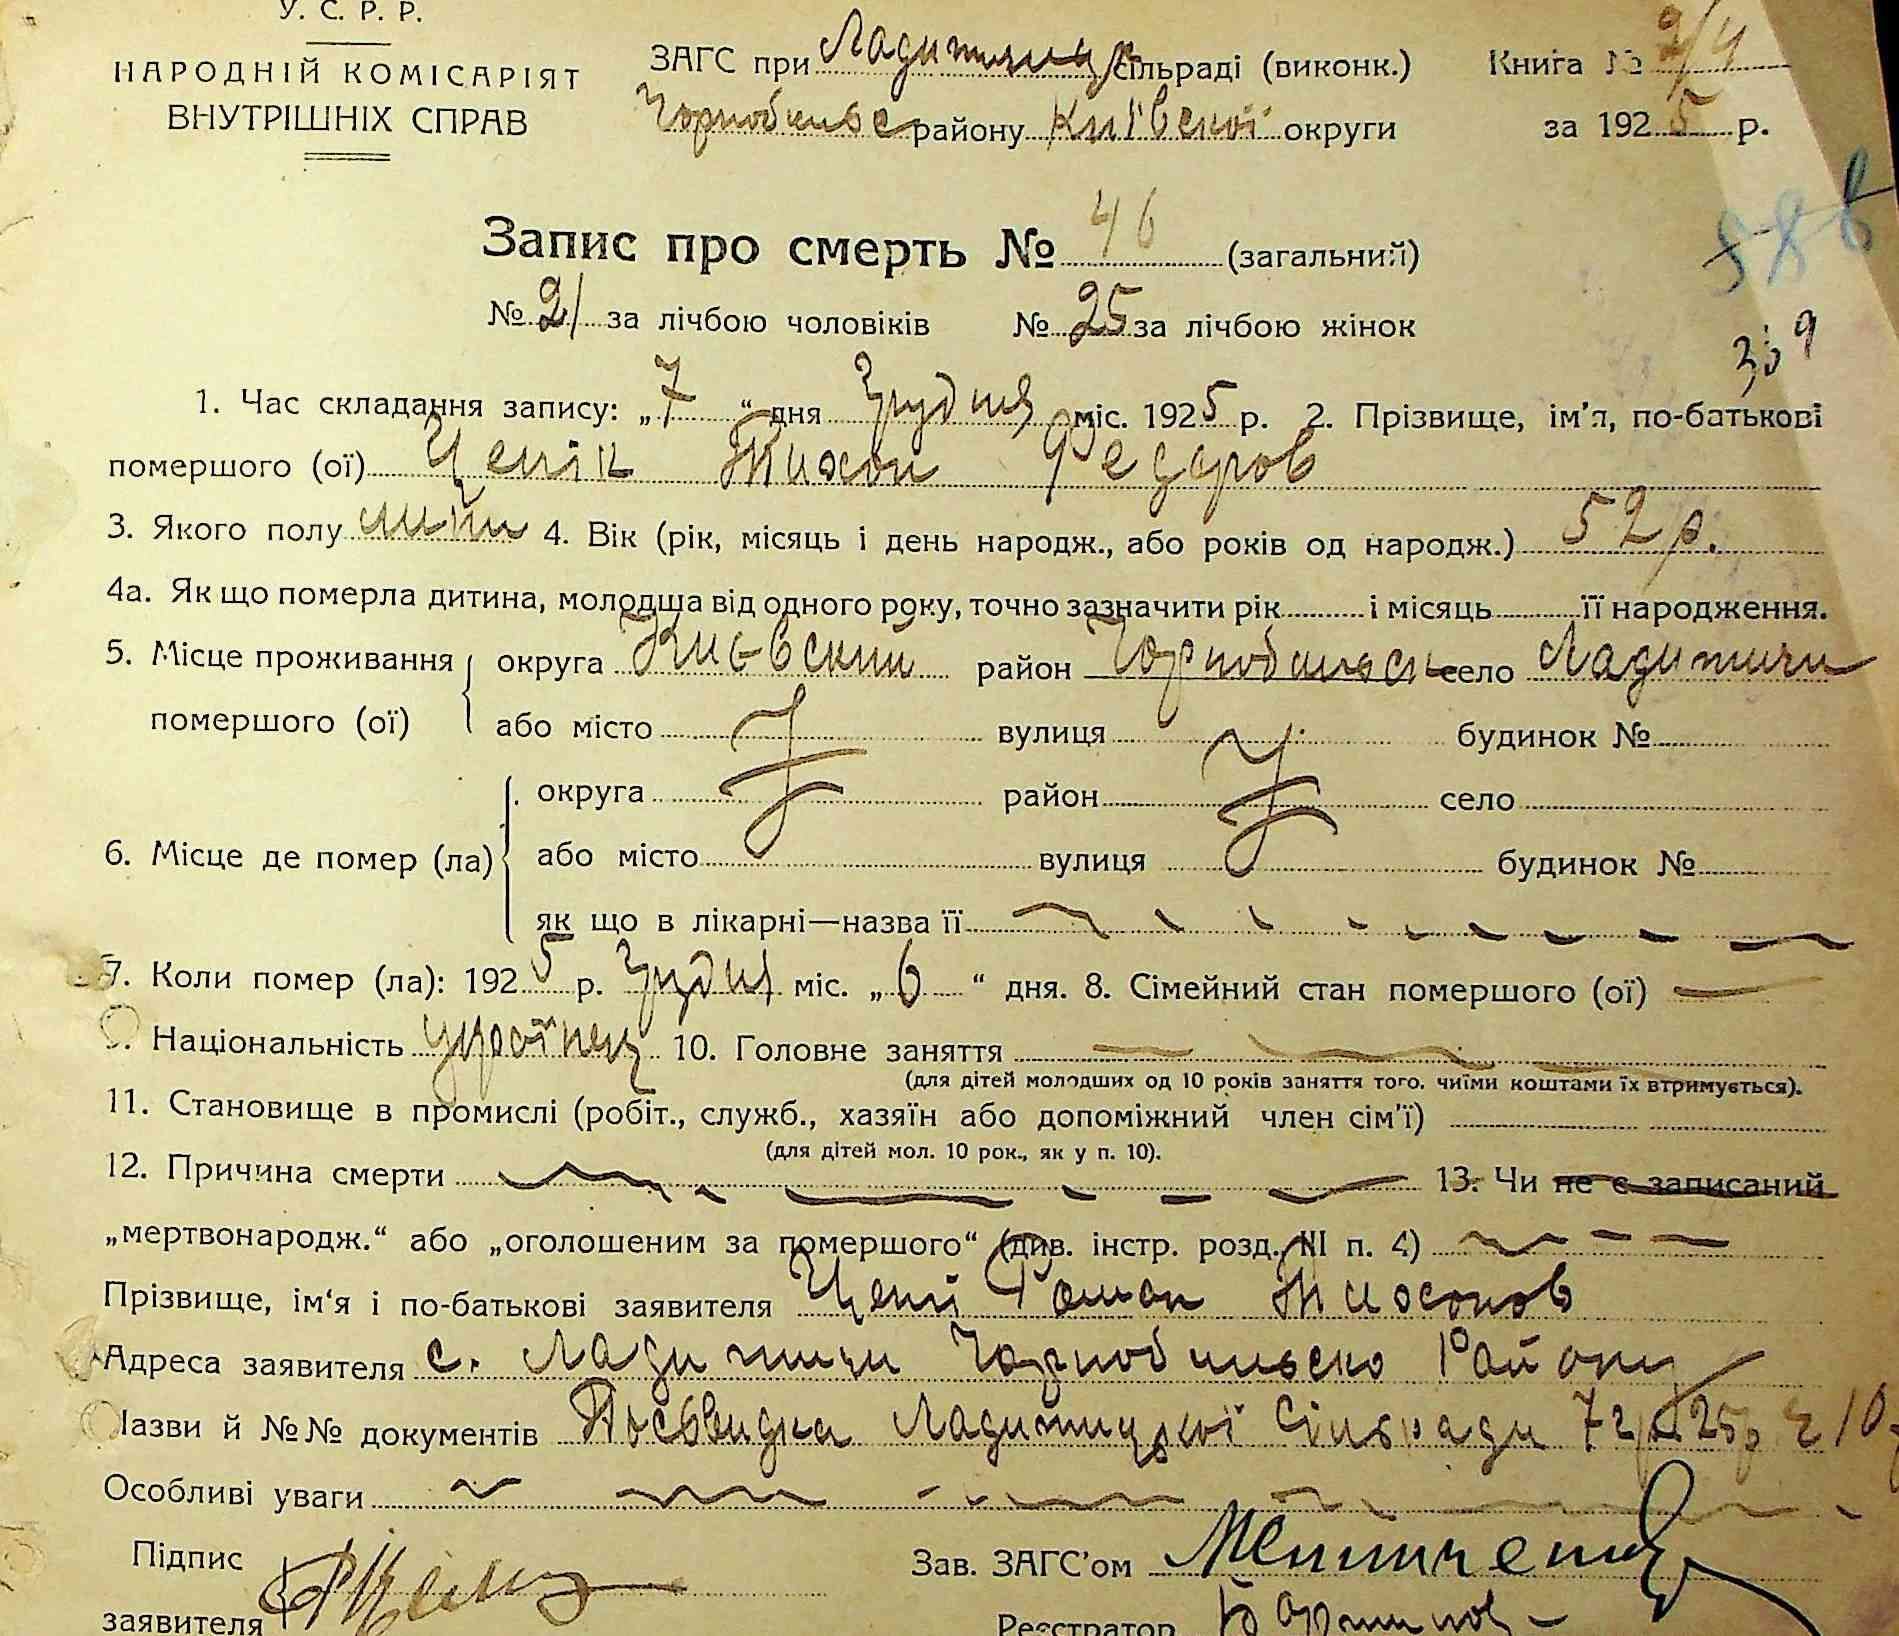 У. С. Р. Р.
НАРОДНІЙ КОМІСАРІЯТ
ВНУТРІШНІХ СПРАВ
ЗАГС при Ладижицьк сільраді (виконк.)
Чорнобильс району Київської округи
Книга № 2/4
за 1925 р.
588
Запис про смерть № 46 (загальний)
№ 21 за лічбою чоловіків № 25 за лічбою жінок
1. Час складання запису: „7“ дня Грудня міс. 1925 р. 2. Прізвище, ім'я, по-батькові
помершого (ої) Цепік Тихон Федоров
3. Якого полу 4. Вік (рік, місяць і день народж., або років од народж.) 52 р.
4а. Як що померла дитина, молодша від одного року, точно зазначити рік і місяць її народження.
5. Місце проживання помершого (ої) округа Киевский район Чорнобильськ село Ладижичи
або місто вулиця будинок №
6. Місце де помер (ла) округа район село
або місто вулиця будинок №
як що в лікарні—назва її
7. Коли помер (ла): 1925 р. Грудня міс. „6“ дня. 8. Сімейний стан помершого (ої) —
9. Національність украінец 10. Головне заняття
(для дітей молодших од 10 років заняття того, чиїми коштами їх втримується).
11. Становище в промислі (робіт., служб., хазяїн або допоміжний член сім'ї)
(для дітей мол. 10 рок., як у п. 10).
12. Причина смерти 13. Чи не є записаний
„мертвонародж.“ або „оголошеним за помершого“ (див. інстр. розд. III п. 4)
Прізвище, ім'я і по-батькові заявителя Роман Тихонов
Адреса заявителя с. Ладижичи Чорнобильско Району
Назви й №№ документів Посвидка Ладижицької Сільради 25р 10
Особливі уваги
Підпис
заявителя
Зав. ЗАГС'ом
Реєстратор